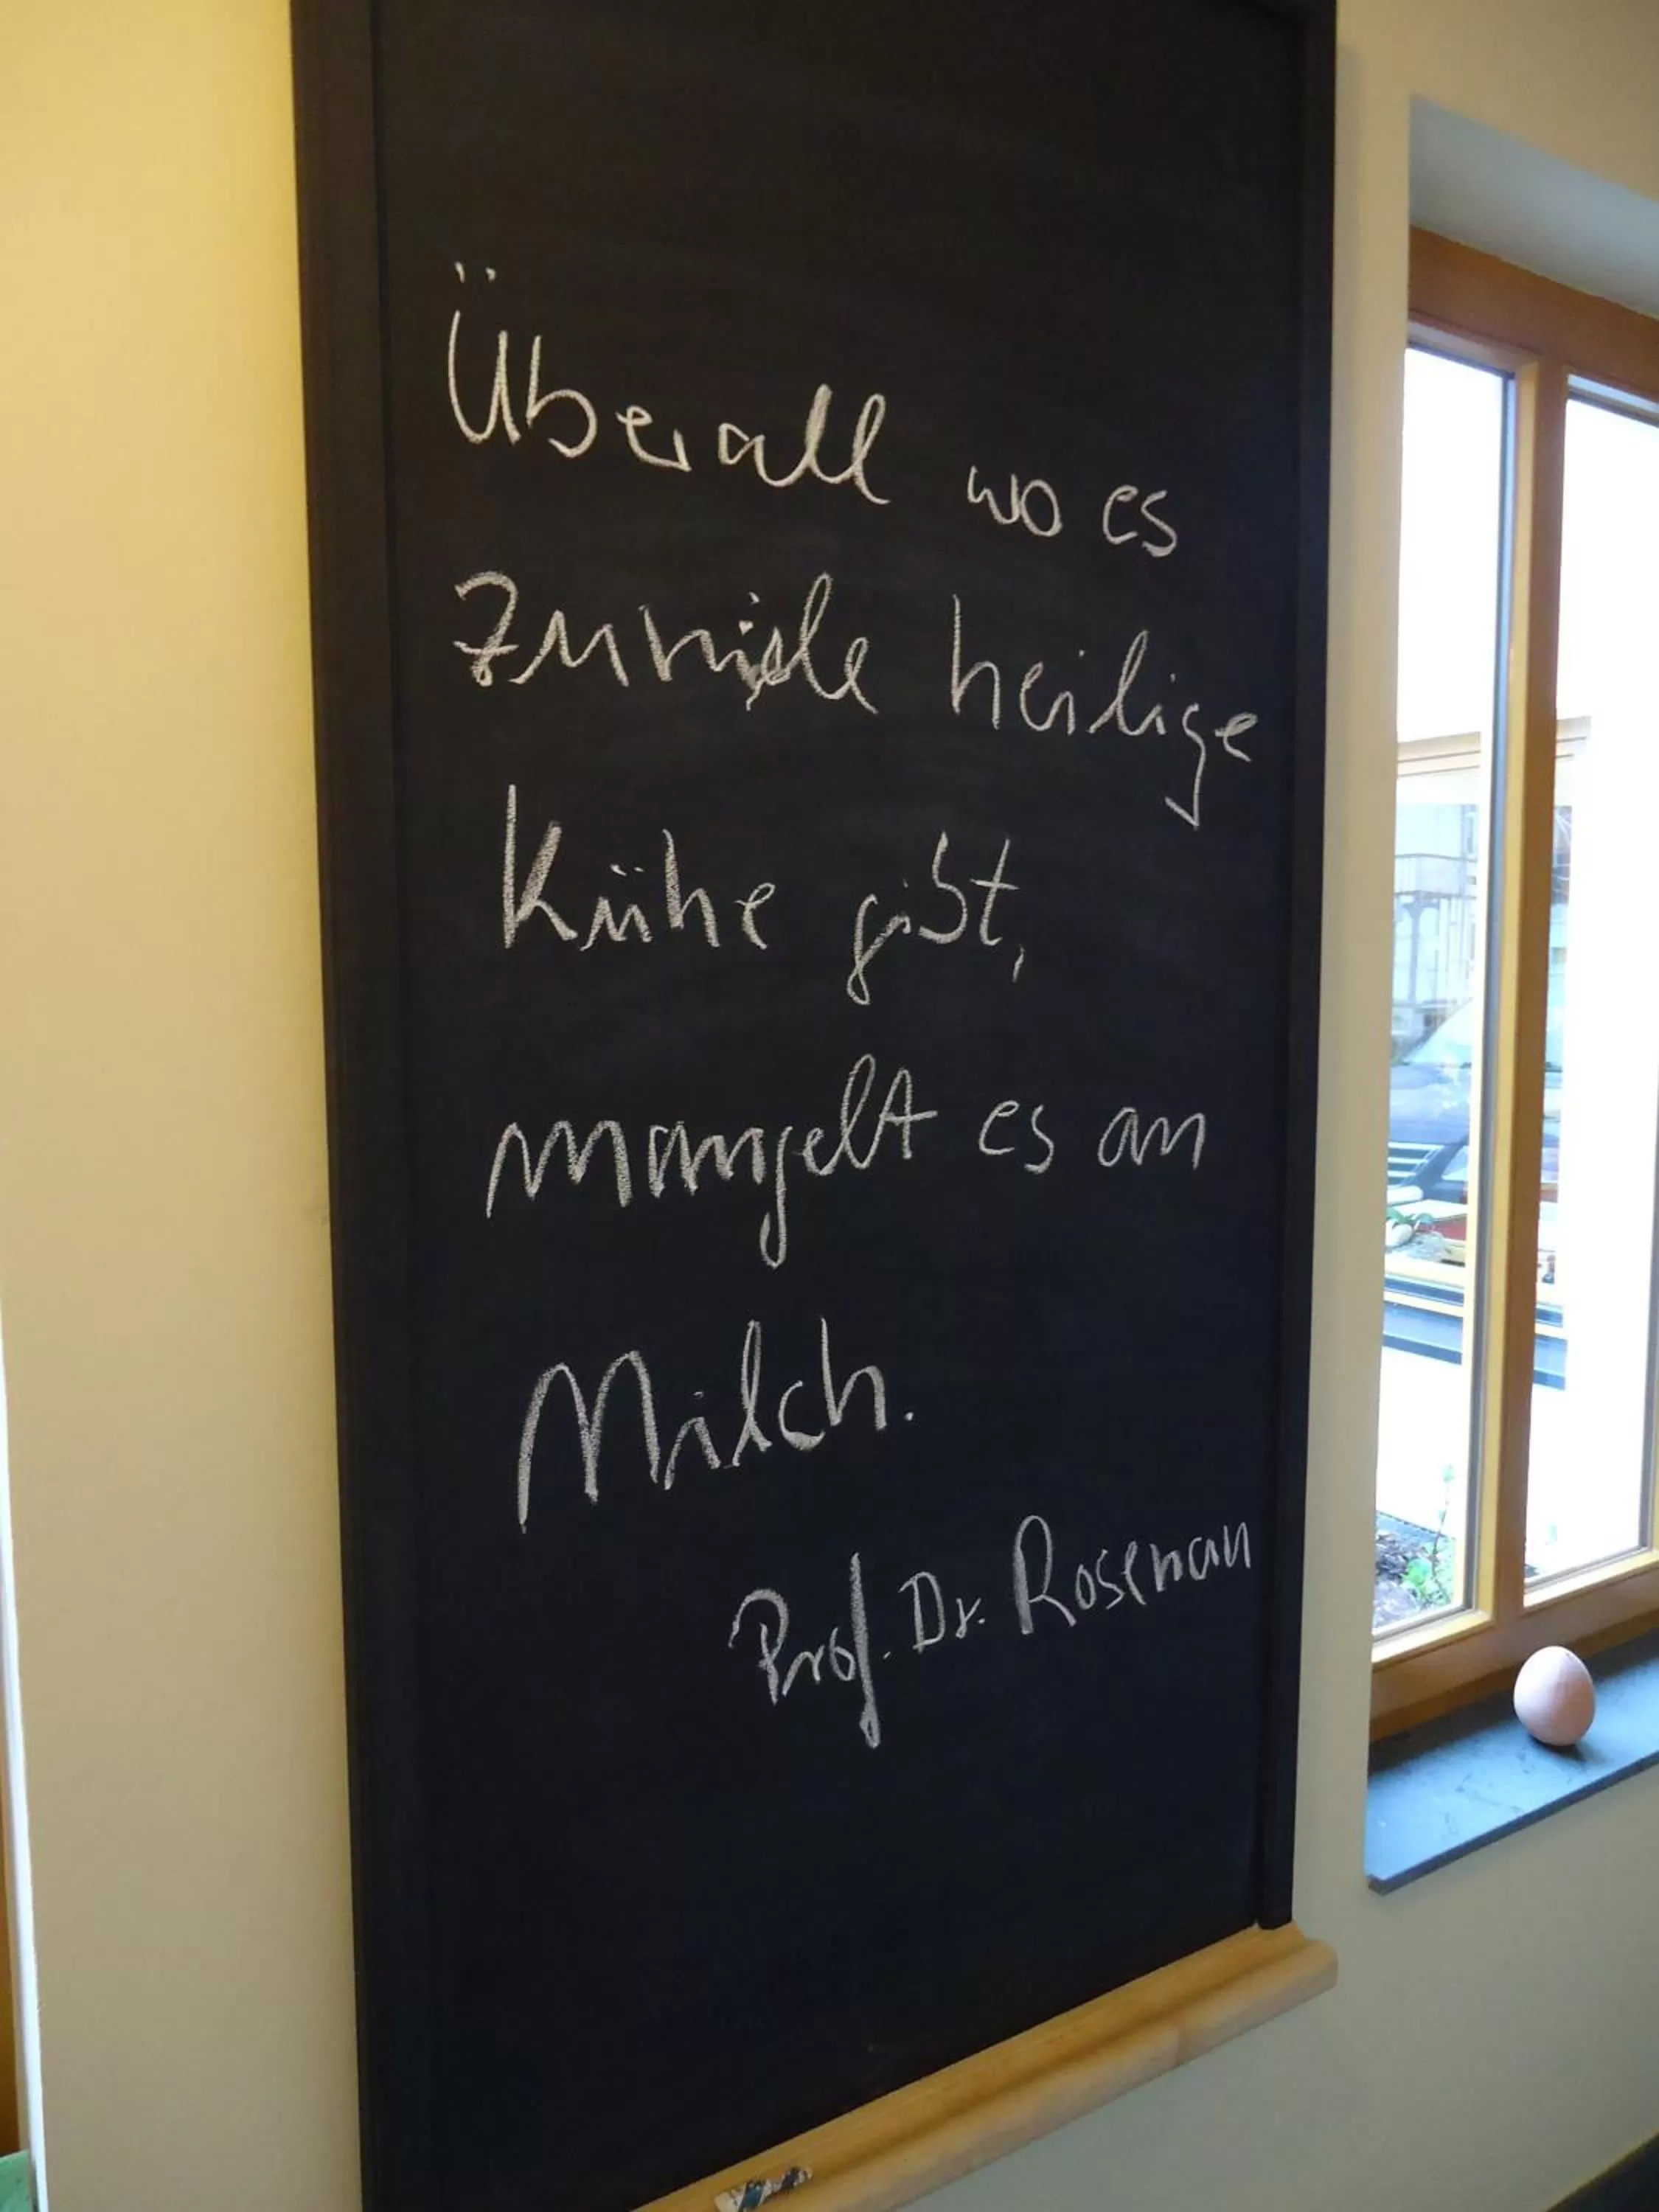 Überall wo es
zuviele heilige
Kühe gibt,
mangelt es an
Milch.
Prof. Dr. Roseman